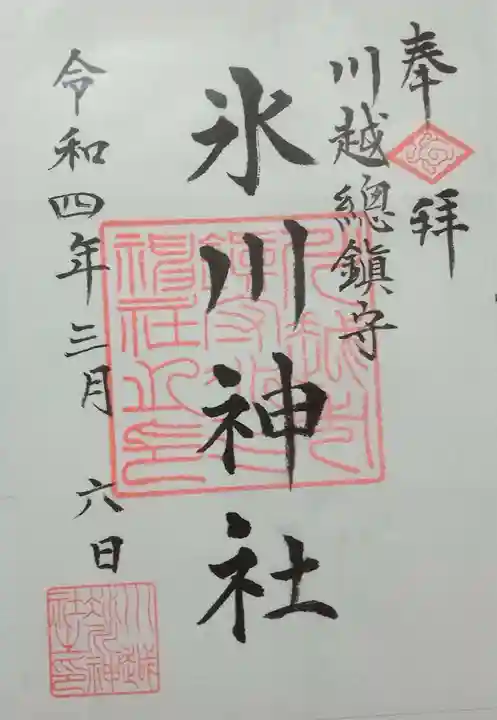 奉拝
川越總鎮守
氷川神社
令和四年三月六日